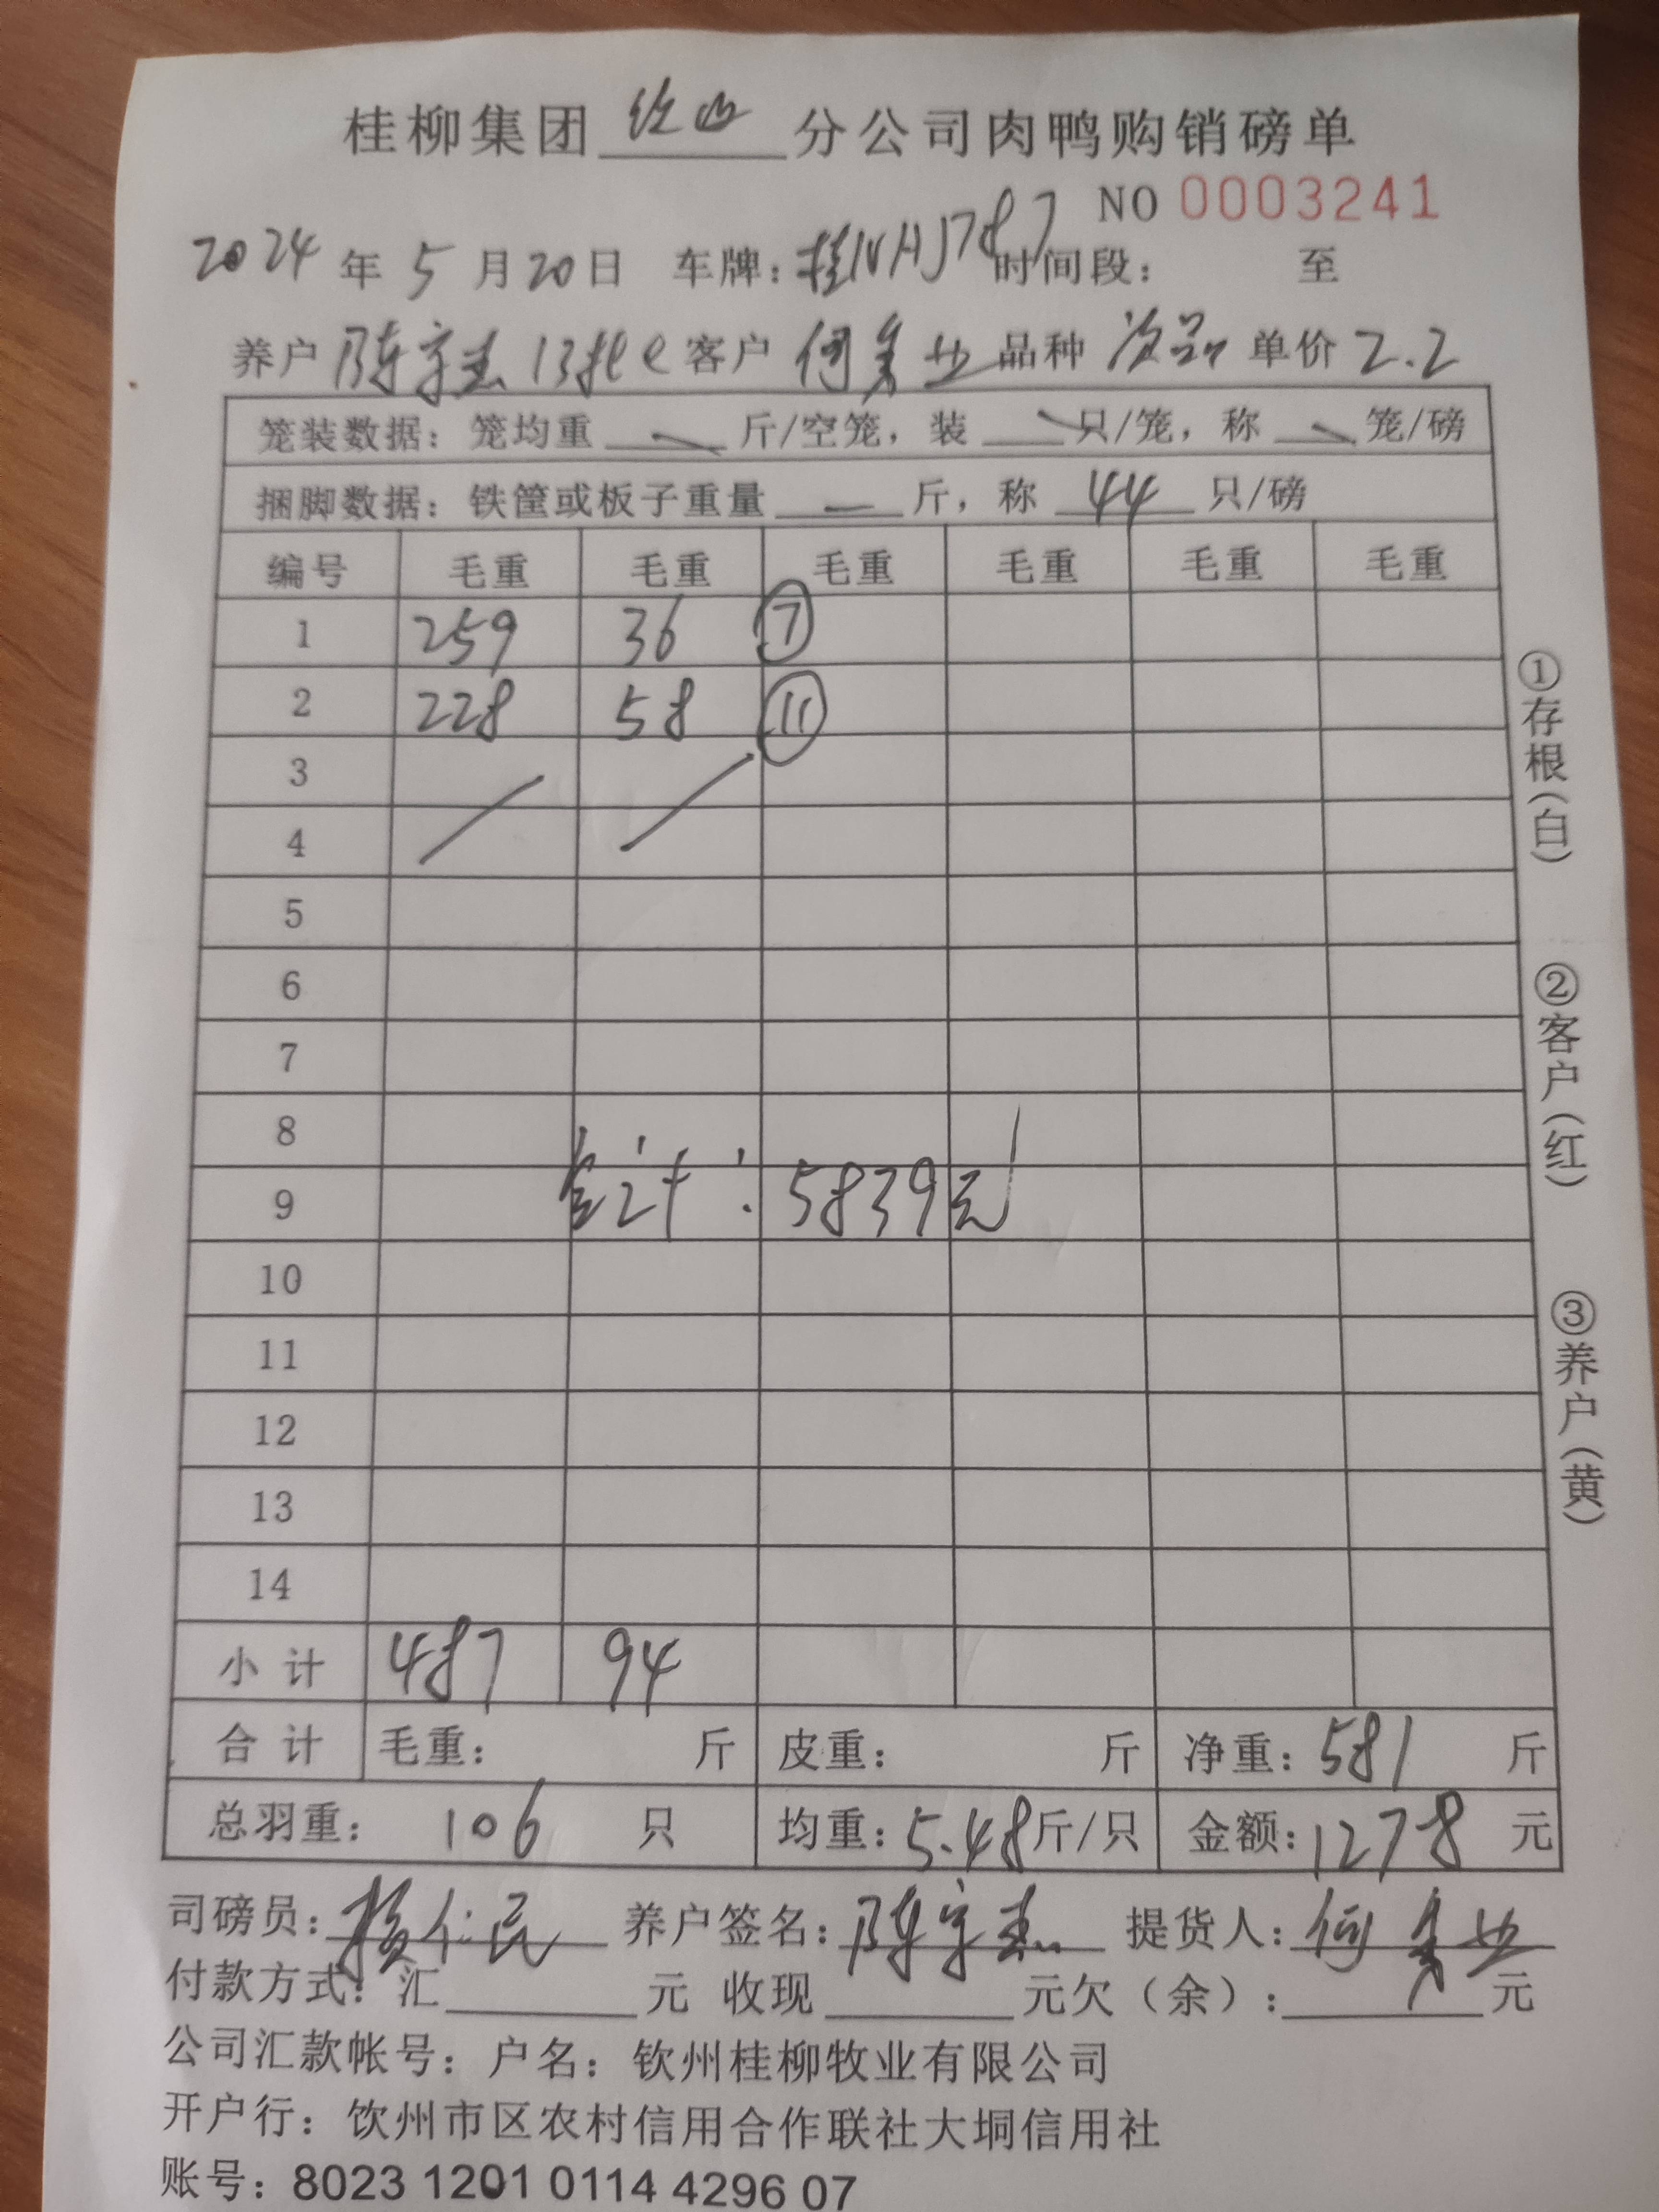 桂柳集团 分公司肉鸭购销磅单
NO 0003241
2024 年 5 月 20 日 车牌：桂NHJ787 时间段： 至
养户 陈宇杰 13批 客户 何 业 品种 次品 单价 2.2
笼装数据：笼均重 斤/空笼，装 只/笼，称 笼/磅
捆脚数据：铁筐或板子重量 — 斤，称 44 只/磅
编号 毛重 毛重 毛重 毛重 毛重 毛重
1 259 36 ⑦
2 228 58 ⑪
3
4
5
6
7
8
9 合计：5839元
10
11
12
13
14
小计 487 94
合计 毛重： 斤 皮重： 斤 净重：581 斤
总羽重： 106 只 均重：5.48斤/只 金额：1278 元
司磅员： 仁民 养户签名：陈宇杰 提货人：何 业
付款方式：汇 元 收现 元欠（余）： 元
公司汇款帐号：户名：钦州桂柳牧业有限公司
开户行：饮州市区农村信用合作联社大垌信用社
账号：8023 1201 0114 4296 07
①存根（白）
②客户（红）
③养户（黄）